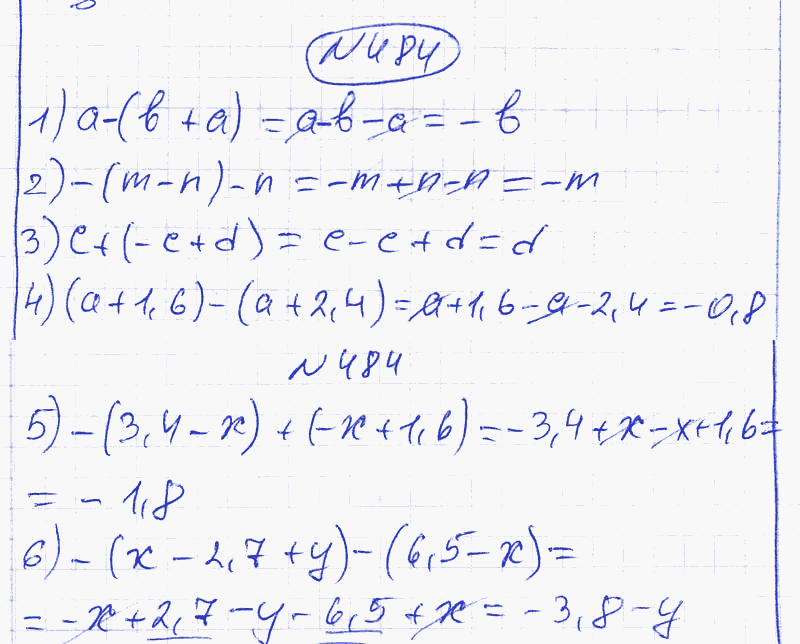 N484
1) a-(b+a) = a-b-a = -b
2) -(m-n)-n = -m+n-n = -m
3) c+(-c+d) = c-c+d = d
4) (a+1,6)-(a+2,4) = a+1,6-a-2,4 = -0,8
N484
5) -(3,4-x)+(-x+1,6) = -3,4+x-x+1,6=
= -1,8
6) -(x-2,7+y)-(6,5-x)=
= -x+2,7-y-6,5+x = -3,8-y